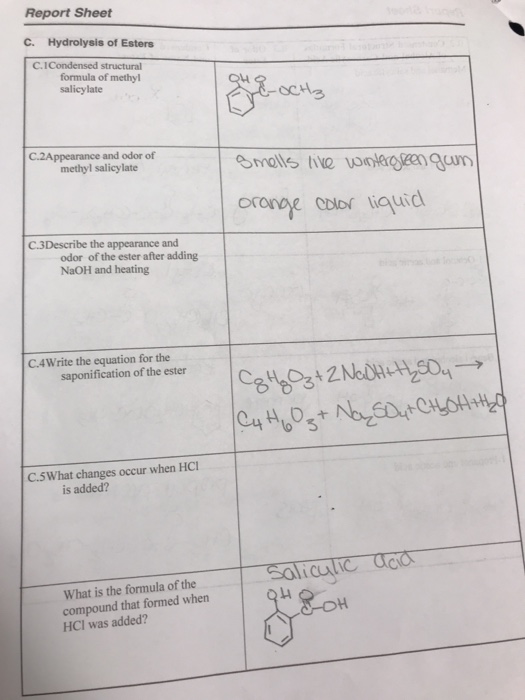 Report Sheet
C. Hydrolysis of Esters
C.1Condensed structural
formula of methyl
salicylate
OH O
C-OCH3
C.2Appearance and odor of
methyl salicylate
Smells like wintergreen gum
orange color liquid
C.3Describe the appearance and
odor of the ester after adding
NaOH and heating
C.4Write the equation for the
saponification of the ester
C8H8O3+2NaOH+H2SO4→
C4H6O3+Na2SO4+CH3OH+H2O
C.5What changes occur when HCl
is added?
What is the formula of the
compound that formed when
HCl was added?
Salicylic acid
OH O
C-OH